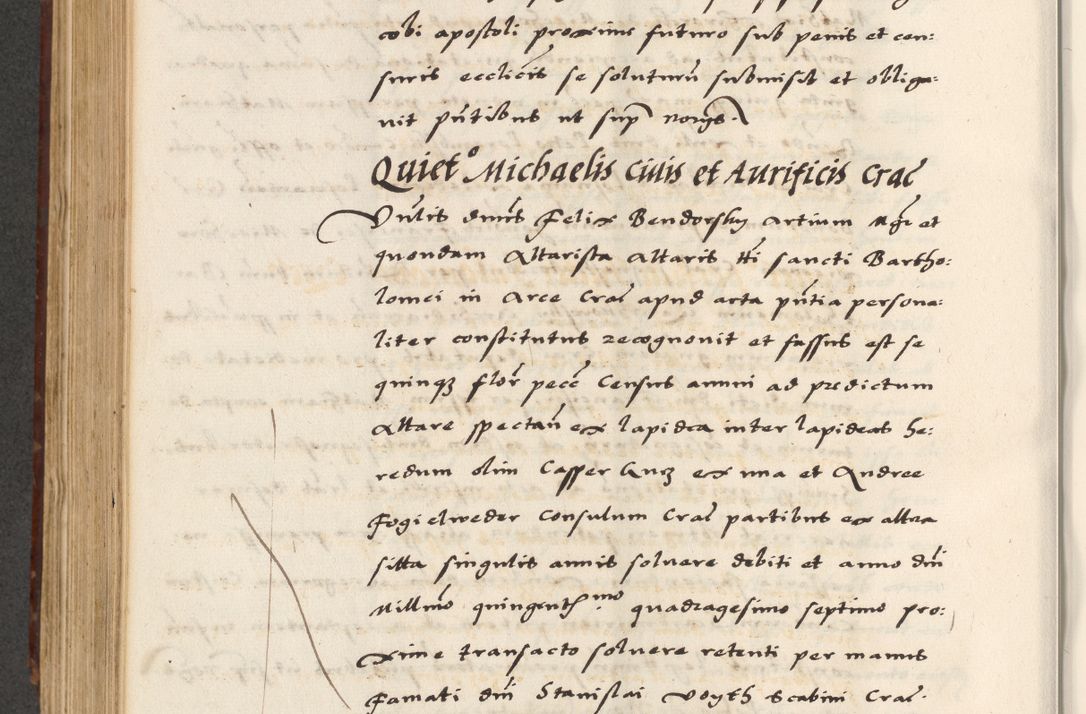 cobi apostoli proxime futuro sub penis et cen:
suris ecclicis se soluturu submisit et obliga:
vit pntibus ut sup
Quiet.º Michaelis Civis et Aurificis Crac
Vnlis dnus Felix Bendorsky Artium Mgr et
quondam Altarista Altaris tti sancti Bartho:
lomei in Arce Crac apud acta pntia persona:
liter constitutus recognovit et fassus est se
quinqz flor pecc Census annui ad predictum
Altare spectan ex lapidea inter lapideas he:
redum olim Casper Gurz ex una et Andree
Fogielweder Consulum Crac partibus ex altra
sitta singulis annis solvere debiti et anno dni
Millmo quingenth.mo quadragesimo septimo pro:
xime transacto solvere retenti per manus
famati dni Stanislai Voyth Scabini Crac.